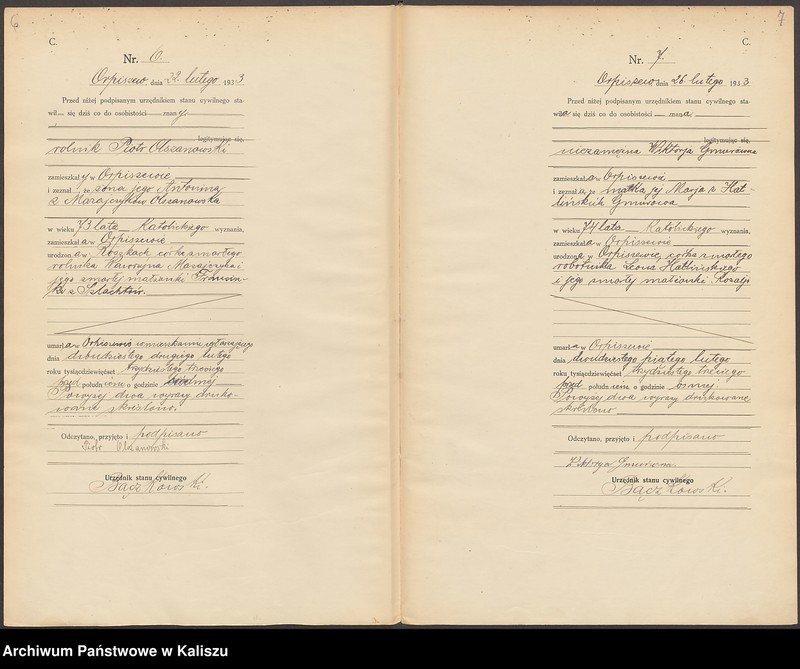 6
C.
Nr. 6.
Orpiszew, dnia 22 lutego 1933
Przed niżej podpisanym urzędnikiem stanu cywilnego sta-
wił się dziś co do osobistości — znany
legitymując się,
rolnik Piotr Olszanowski
zamieszkały w Orpiszewie
i zeznał, że żona jego Antonina
z Matajczyków Olszanowska
w wieku 73 lata — Katolickiego wyznania,
zamieszkała w Orpiszewie
urodzona w córka zmarłego
rolnika Wawrzyna
jego zmarłej małżonki
z
umarła w Orpiszewie w mieszkaniu
dnia dwudziestego drugiego lutego
roku tysiącdziewięćset trzydziestego trzeciego
przed południem o godzinie
Powyżej dwa wyrazy druko-
wane skreślono.
Odczytano, przyjęto i podpisano
Piotr Olszanowski
Urzędnik stanu cywilnego
Bączkowski.
7
C.
Nr. 7.
Orpiszew, dnia 26 lutego 1933.
Przed niżej podpisanym urzędnikiem stanu cywilnego sta-
wiła się dziś co do osobistości — znana,
legitymując się,
niezamężna Wiktorja Gmurówna
zamieszkała w Orpiszewie
i zeznała, że matka jej Marja z Kat-
lińskich Gmurowa
w wieku 74 lata — Katolickiego wyznania,
zamieszkała w Orpiszewie
urodzona w Orpiszewie, córka zmarłego
robotnika Leona Katlińskiego
i jego zmarłej małżonki Rozalji
umarła w Orpiszewie
dnia dwudziestego piątego lutego
roku tysiącdziewięćset trzydziestego trzeciego
przed południem o godzinie ósmej.
Powyżej dwa wyrazy drukowane
skreślono.
Odczytano, przyjęto i podpisano
Wiktorja Gmurówna
Urzędnik stanu cywilnego
Bączkowski.
Archiwum Państwowe w Kaliszu